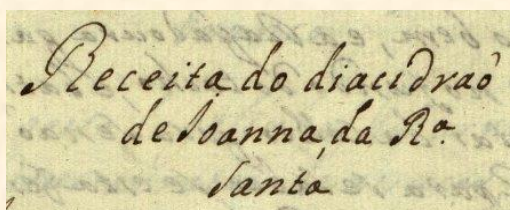 Receita do diacidraõ
de Joanna, da Rª.
Santa